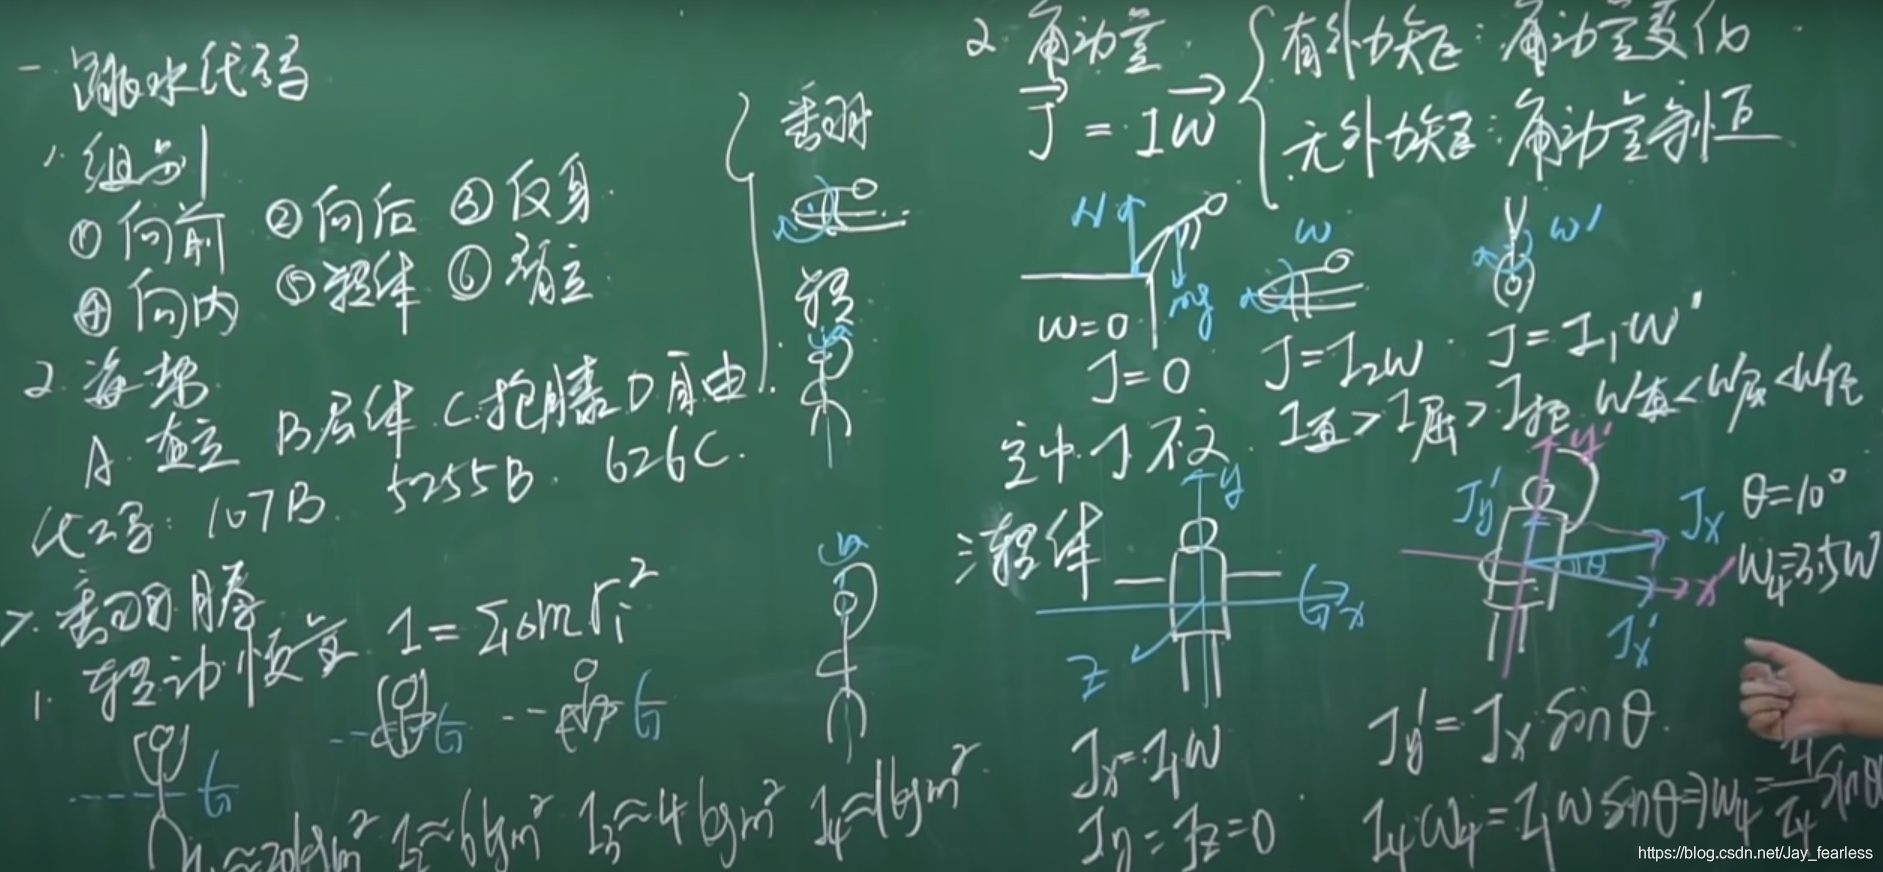 一 跳水代码
1. 组别
① 向前 ② 向后 ③ 反身
④ 向内 ⑤ 转体 ⑥ 臂立
2. 姿势
A. 直立 B 屈体 C. 抱膝 D 自由
代号: 107B. 5255B. 626C.
翻腾
1. 转动惯量 I = Σ△m rᵢ²
I₁≈20kgm² I₂≈6kgm² I₃≈4kgm² I₄≈1kgm²
翻
转
2. 角动量
J = Iω
有外力矩: 角动量变化
无外力矩: 角动量守恒
N
mg
ω=0
J=0
ω
J=I₂ω
ω'
J=I₁ω'
空中 J 不变
I直>I屈>I抱 ω直<ω屈<ω抱
三 转体
y
x
z
Jx=I₁ω
Jy=Jz=0
y'
Jy'
Jx
θ
x'
Jx'
θ=10°
ω₄=3.5ω
Jy'=Jx sinθ
I₄ω₄=I₁ω sinθ⇒ω₄=I₁/I₄ sinθ
https://blog.csdn.net/Jay_fearless